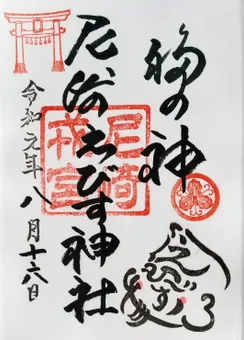 福の神
尼崎えびす神社
尼崎
戎宮
令和元年八月十六日